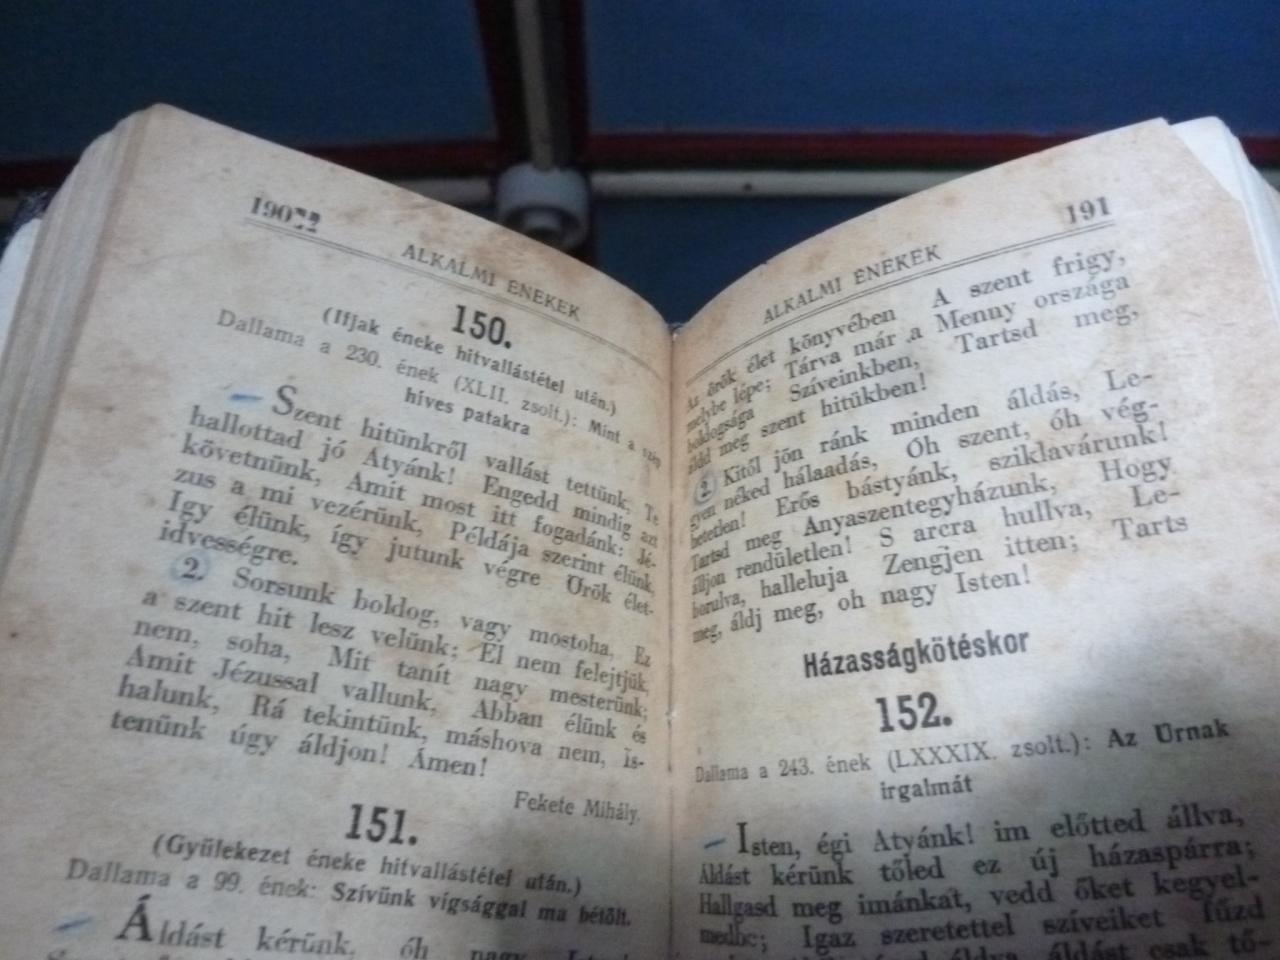 190
ALKALMI ÉNEKEK
150.
(Ifjak éneke hitvallástétel után.)
Dallama a 230. ének (XLII. zsolt.): Mint a szép
híves patakra
Szent hitünkről vallást tettünk, Te
hallottad jó Atyánk! Engedd mindig azt
követnünk, Amit most itt fogadánk: Jé-
zus a mi vezérünk, Példája szerint élünk,
Igy élünk, így jutunk végre Örök élet-
idvességre.
2. Sorsunk boldog, vagy mostoha, Ez
a szent hit lesz velünk; El nem felejtjük,
nem, soha, Mit tanít nagy mesterünk;
Amit Jézussal vallunk, Abban élünk és
halunk, Rá tekintünk, máshova nem, Is-
tenünk úgy áldjon! Ámen!
Fekete Mihály.
151.
(Gyülekezet éneke hitvallástétel után.)
Dallama a 99. ének: Szívünk vígsággal ma bétölt.
Áldást kérünk, óh nagy
191
ALKALMI ÉNEKEK
Az örök élet könyvében A szent frigy,
melybe lépe; Tárva már a Menny országa
boldogsága Szíveinkben, Tartsd meg,
áldd meg szent hitükben!
2. Kitől jön ránk minden áldás, Le-
gyen néked hálaadás, Óh szent, óh vég-
hetetlen! Erős bástyánk, sziklavárunk!
Tartsd meg Anyaszentegyházunk, Hogy
álljon rendületlen! S arcra hullva, Le-
borulva, halleluja Zengjen itten; Tarts
meg, áldj meg, oh nagy Isten!
Házasságkötéskor
152.
Dallama a 243. ének (LXXXIX. zsolt.): Az Úrnak
irgalmát
Isten, égi Atyánk! im előtted állva,
Áldást kérünk tőled ez új házaspárra;
Hallgasd meg imánkat, vedd őket kegyel-
medbe; Igaz szeretettel szíveiket fűzd
áldva, áldást csak tő-